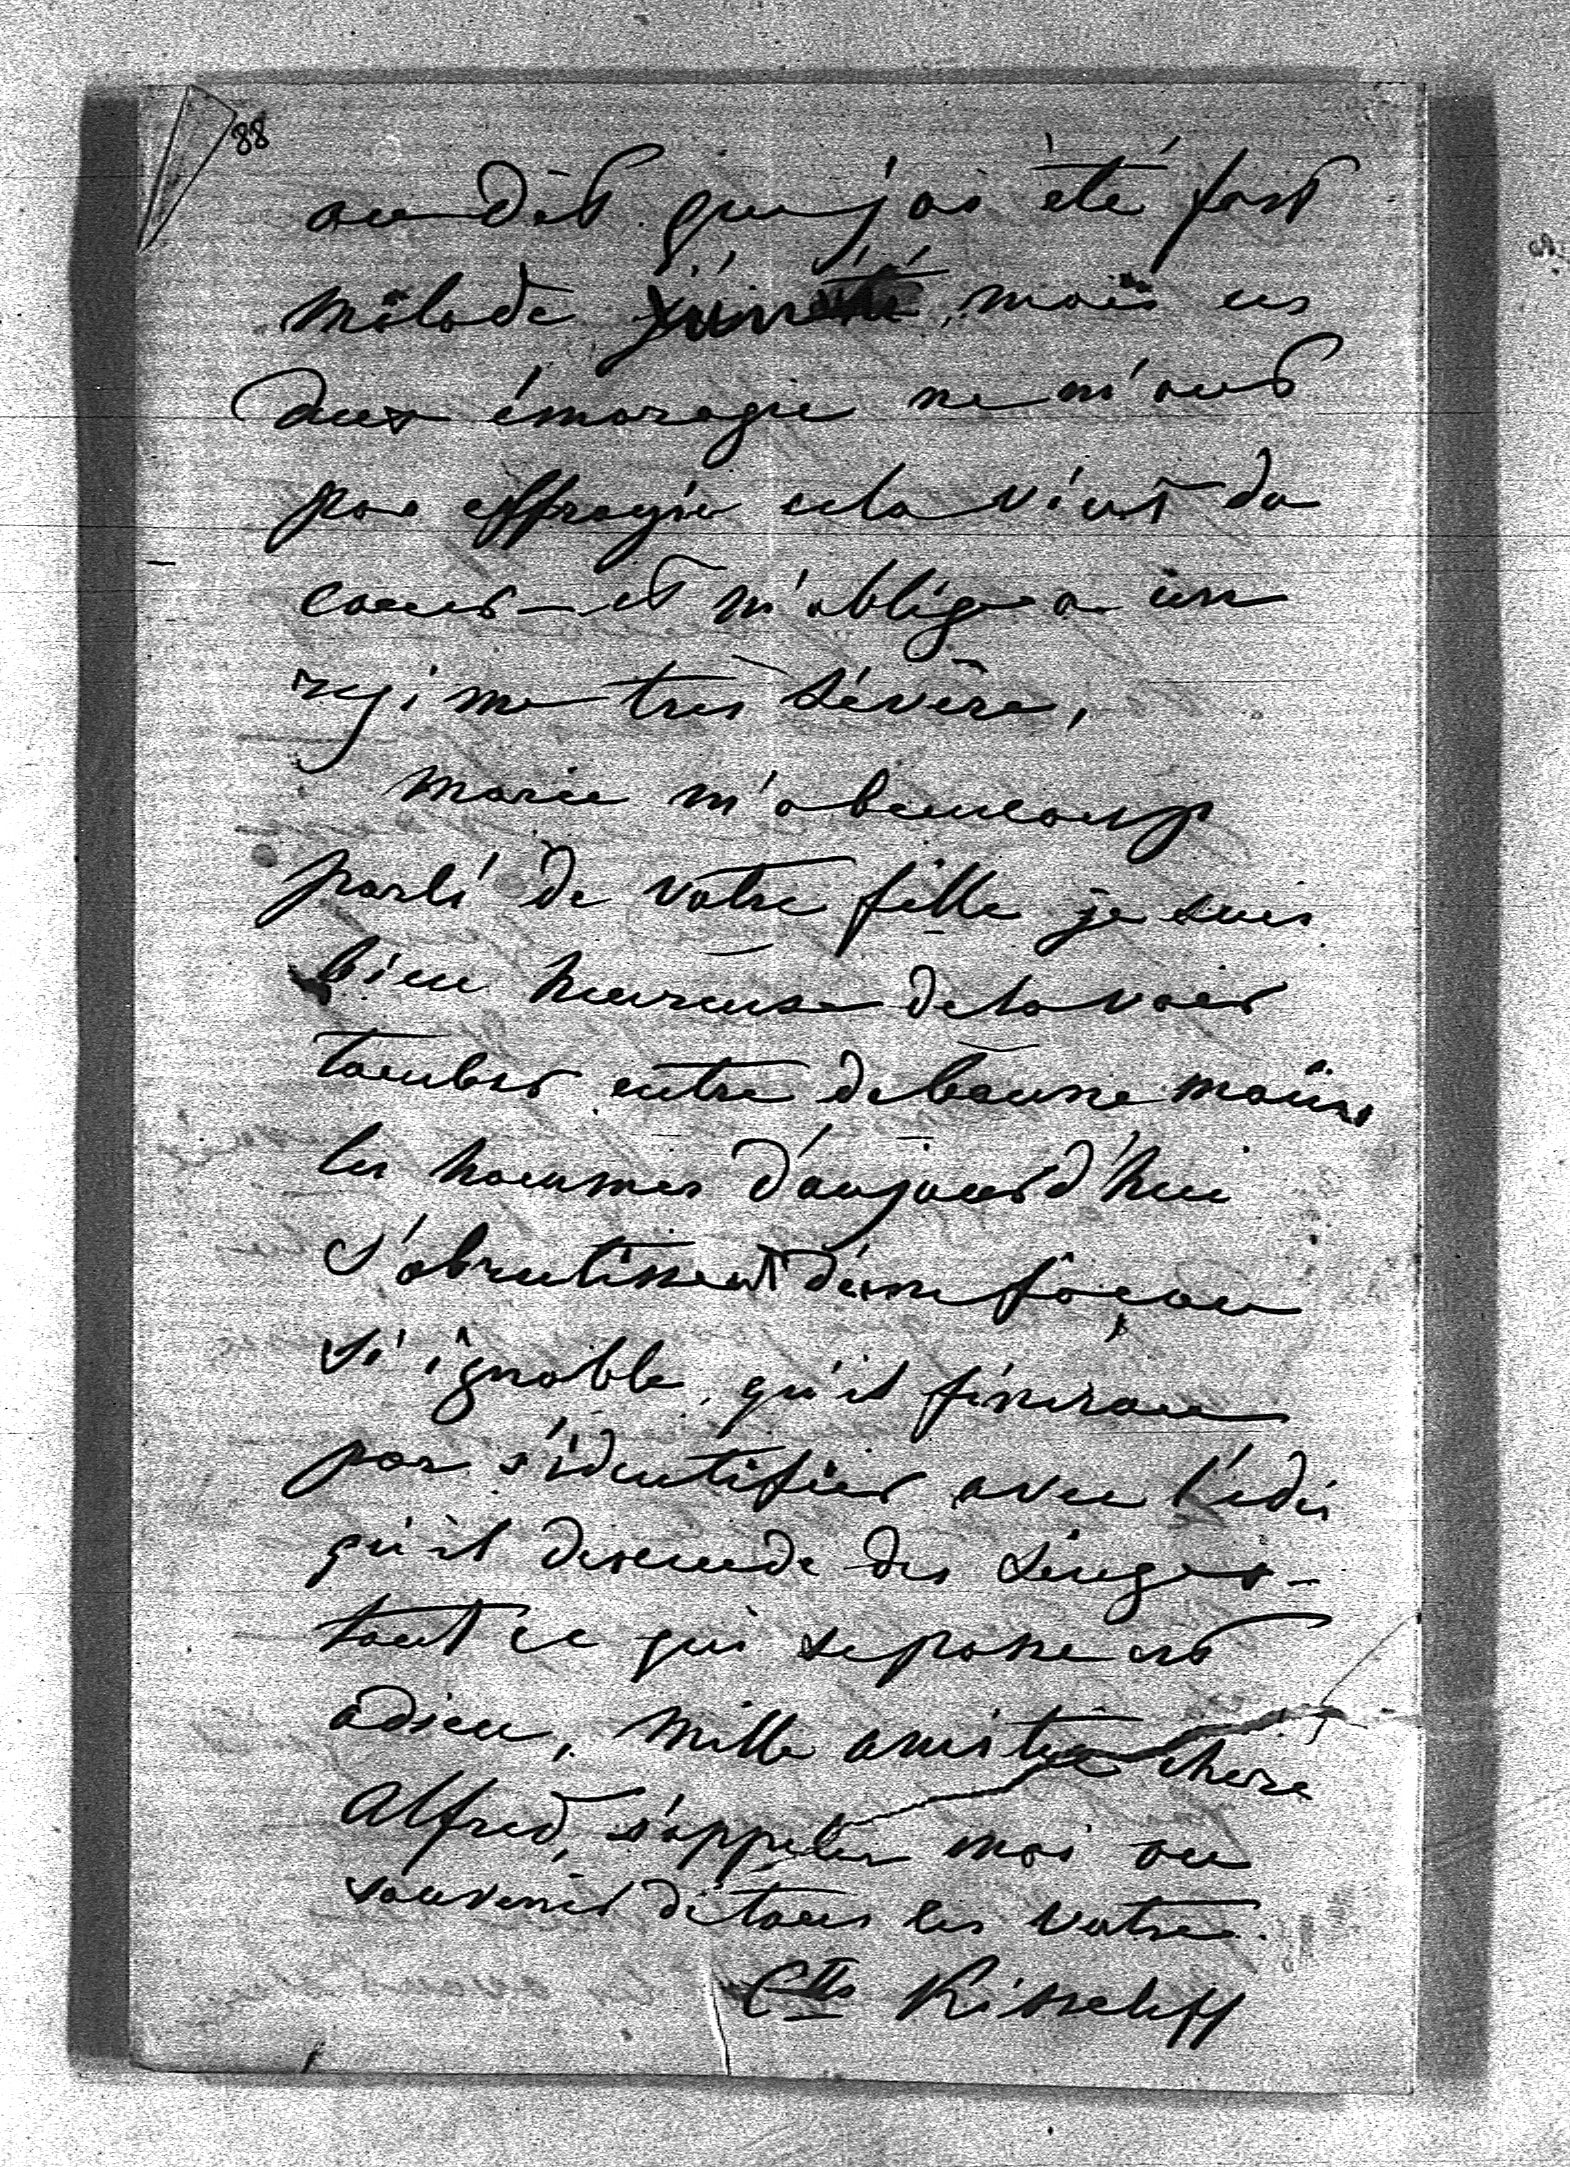 88
on dit que j'ai été fort
malade, mais ces
deux émoragie ne m'ont
pas effrayée cela vient du
coeur – et m'oblige a un
rejime très sévère,
Marie m'a beaucoup
parlé de votre fille je suis
bien heureuse de la voir
tomber entre de bonne mains
les hommes d'aujourd'hui
s'abrutissent d'une façon
si ignoble, qu'il finiron
par s'identifier avec l'idée
qu'il descende des singes –
tout ce qui se passe est
adieu, mille amitiés chère
Alfred, rappeler moi au
souvenir de tous les votres.
Ctsse Kisseleff